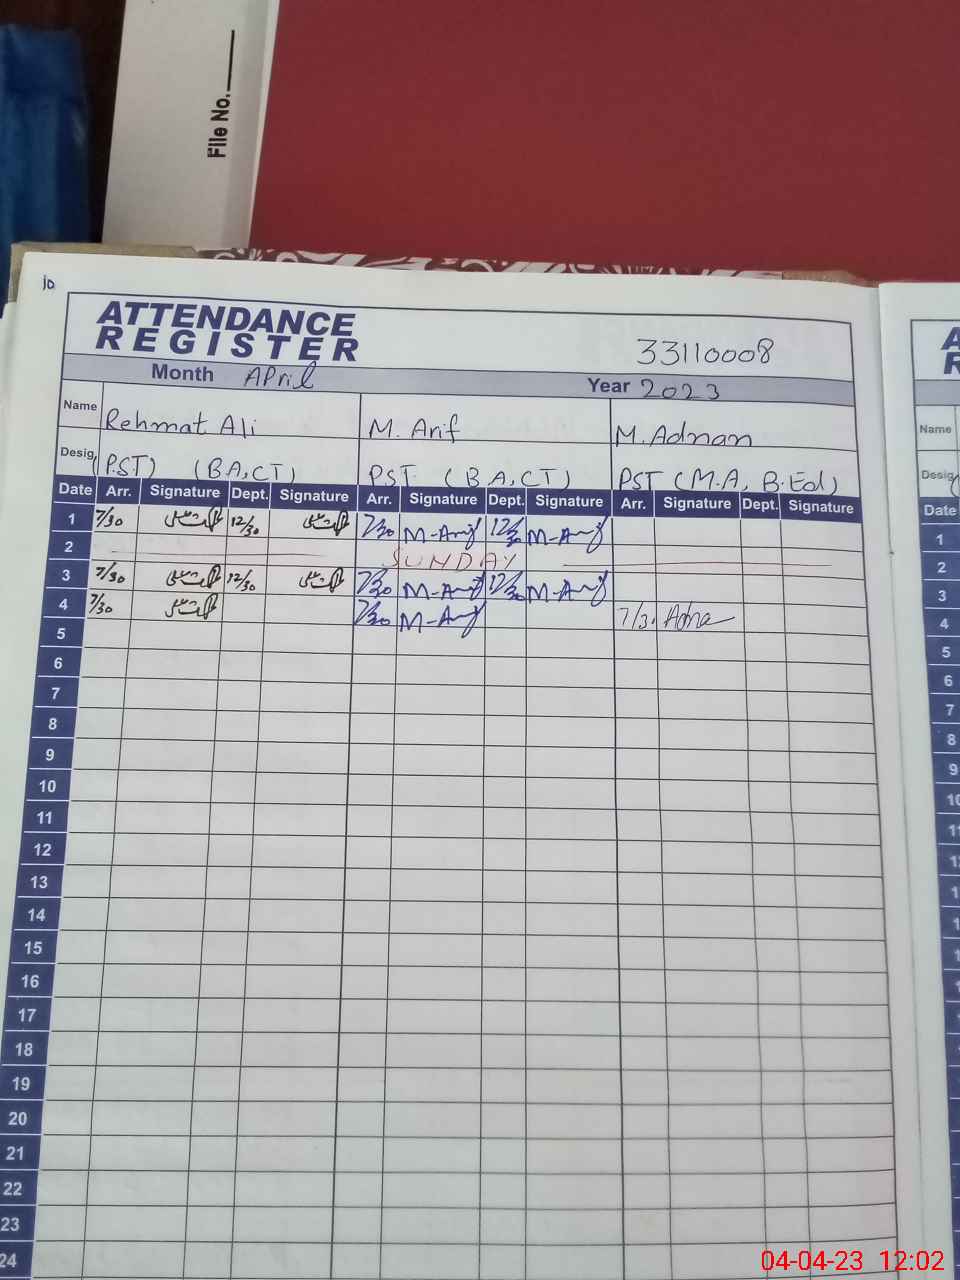 File No.
10
ATTENDANCE
REGISTER
33110008
Month April Year 2023
Name Rehmat Ali M. Arif M. Adnan
Desig. (PST) (BA,CT) PST (BA,CT) PST (M.A, B.Ed)
Date Arr. Signature Dept. Signature Arr. Signature Dept. Signature Arr. Signature Dept. Signature
1 7/30 12/30 7/30 M-Arif 12/30 M-Arif
2 SUNDAY
3 7/30 12/30 7/30 M-Arif 12/30 M-Arif
4 7/30 7/30 M-Arif 7/3. Adna
5
6
7
8
9
10
11
12
13
14
15
16
17
18
19
20
21
22
23
24
A
R
Name
Desig
Date
1
2
3
4
5
6
7
8
9
04-04-23 12:02